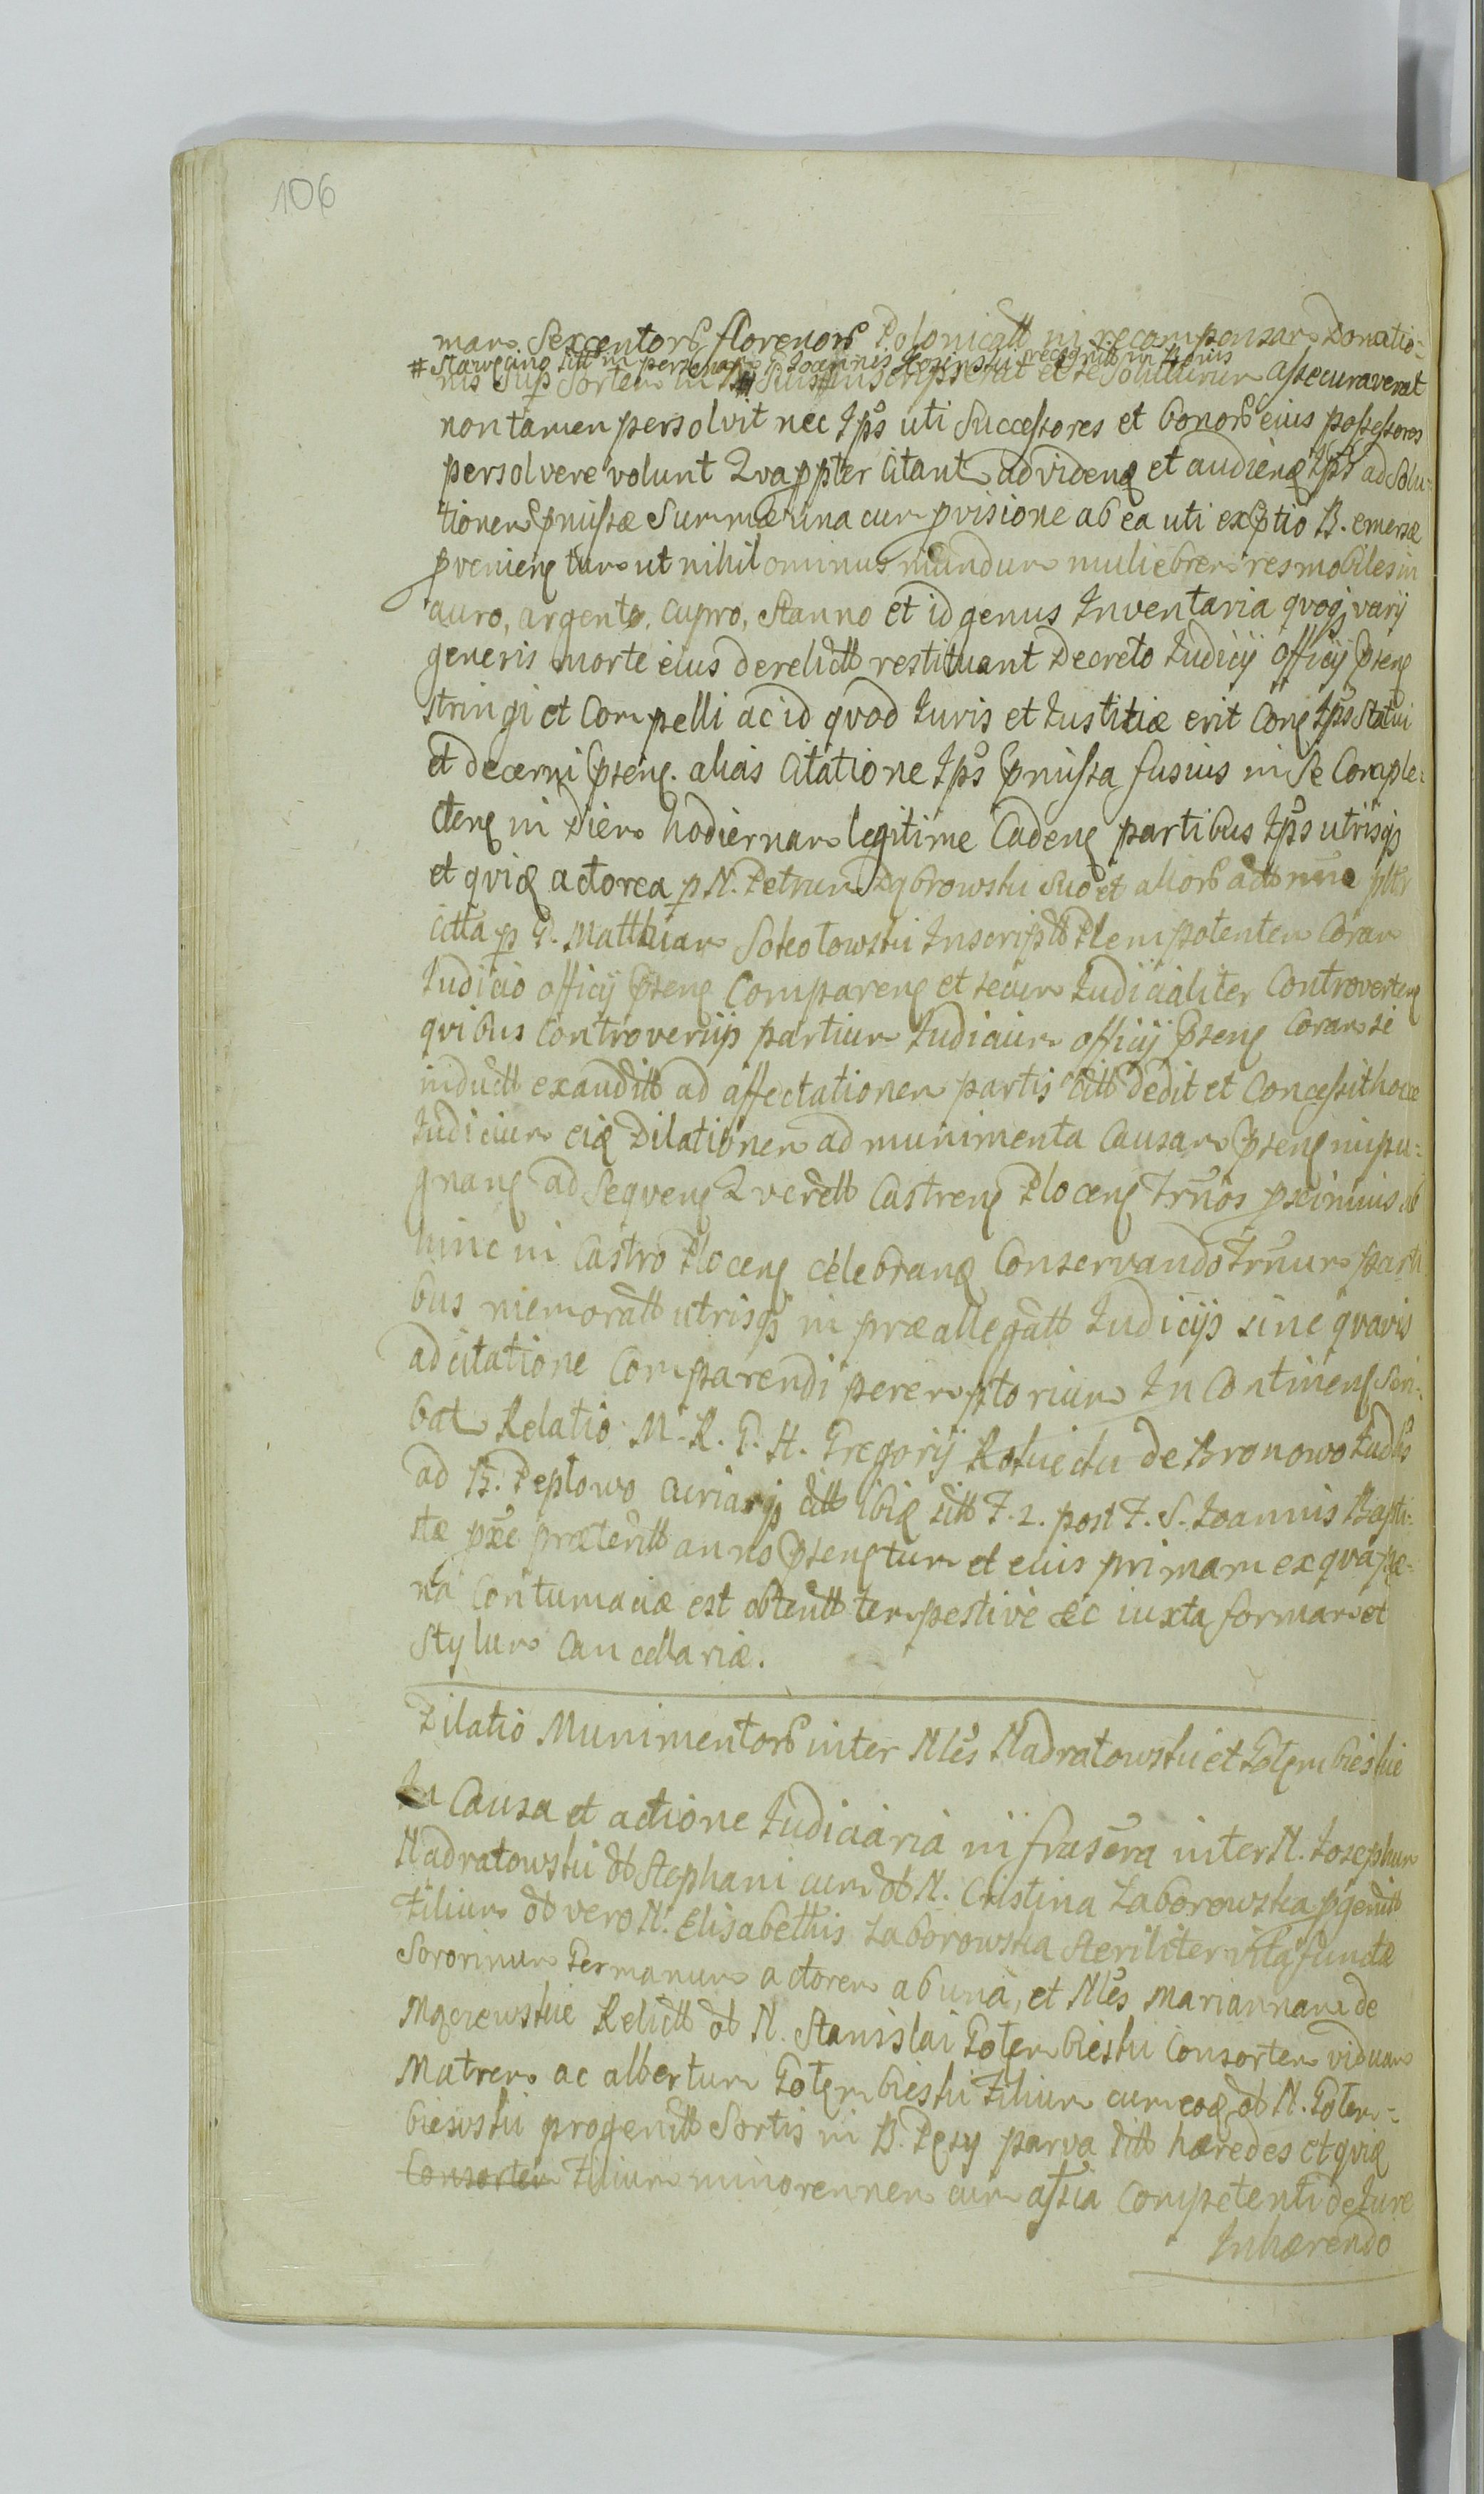 106
mam Sexcentorum florenorum Polonicall in recompensam Donatio-
# Staweęcino sitt in personam G. Joannis Kosinski recognitt in Bonis
nis sup Sortem in B. suis # inscripserat et se soluturum assecuraverat
non tamen persolvit nec Ips uti Successores et bonor eius possessores
persolvere volunt Qvappter Citant ad videnq et audienq Ips ad Solu-
tionem pmissæ Summæ una cum pvisione ab ea uti ex ptio B. emersæ
pvenienq tum ut nihilominus mundum muliebrem res mobiles in
auro, argento, cupro, Stanno et id genus Inventaria qvoqz varij
generis morte eius derelictt restituant Decreto Iudicij officij psenq
stringi et Compelli ac id qvod Iuris et Iustitiæ erit Conq Ips Statui
et decerni psenq. alias Citatione Ips pmissa fusius in se Comple-
ctenq in Diem hodiernam legitime Cadenq partibus Ips utrisqz
et qviq actorea p N. Petrum Dąbrowski suo et alior act nne pltr
citta p G. Matthiam Sokołowski Inscriptt Plenipotentem Coram
Iudicio officij psenq Comparenq et secum Iudicialiter Controvertenq
qvibus Controversijs partium Iudicium officij psenq Coram se
inductt exauditt ad affectationem partis Citt dedit et Concessit hocce
Iudicium eiq Dilationem ad munimenta Causam psenq impu-
gnanq ad Seqvenq Qverell Castrenq Plocenq Trnos pximius ab
hinc in Castro Plocenq celebranq Conservando Trnum parti
bus memoratt utrisqz in præallegatt Iudicijs sine qvavis
adcitatione Comparendi peremptorium In Continenq Scri-
bat Relatio M. R. G. H. Gregorij Rokicki de Bronowo Iud
ad B. Peptowo Curiamqz citt ibiq sitt F. 2. post F. S. Joannis Bapti-
stæ pxe præteritt anno psenq tum et eius primam ex qva pæ-
na Contumaciæ est obtentt tempestive &c iuxta formam et
Stylum Cancellariæ.
Dilatio Munimentor inter Nles Nadratowski et Gołembieskie
In Causa et actione Iudiciaria infrascra inter N. Josephum
Nadratowski olt Stephani cum olt N. Cristina Zaborowska pgenitt
Filium olt vero N. Elisabethis Zaborowska steriliter vita functæ
Sororinum Germanum actorem ab una, et Nles Mariannam de
Mączewskie Relictt olt N. Stanislai Gołembieski Consortem viduam
Matrem ac albertum Gołembieski Filium cum eoq olt N. Gołem-
biewski progenitt Sortis in B. Pęsy parva sitt hæredes et qviq
Consortem Filium minorennem cum assia Competenti de Iure
Inhærendo